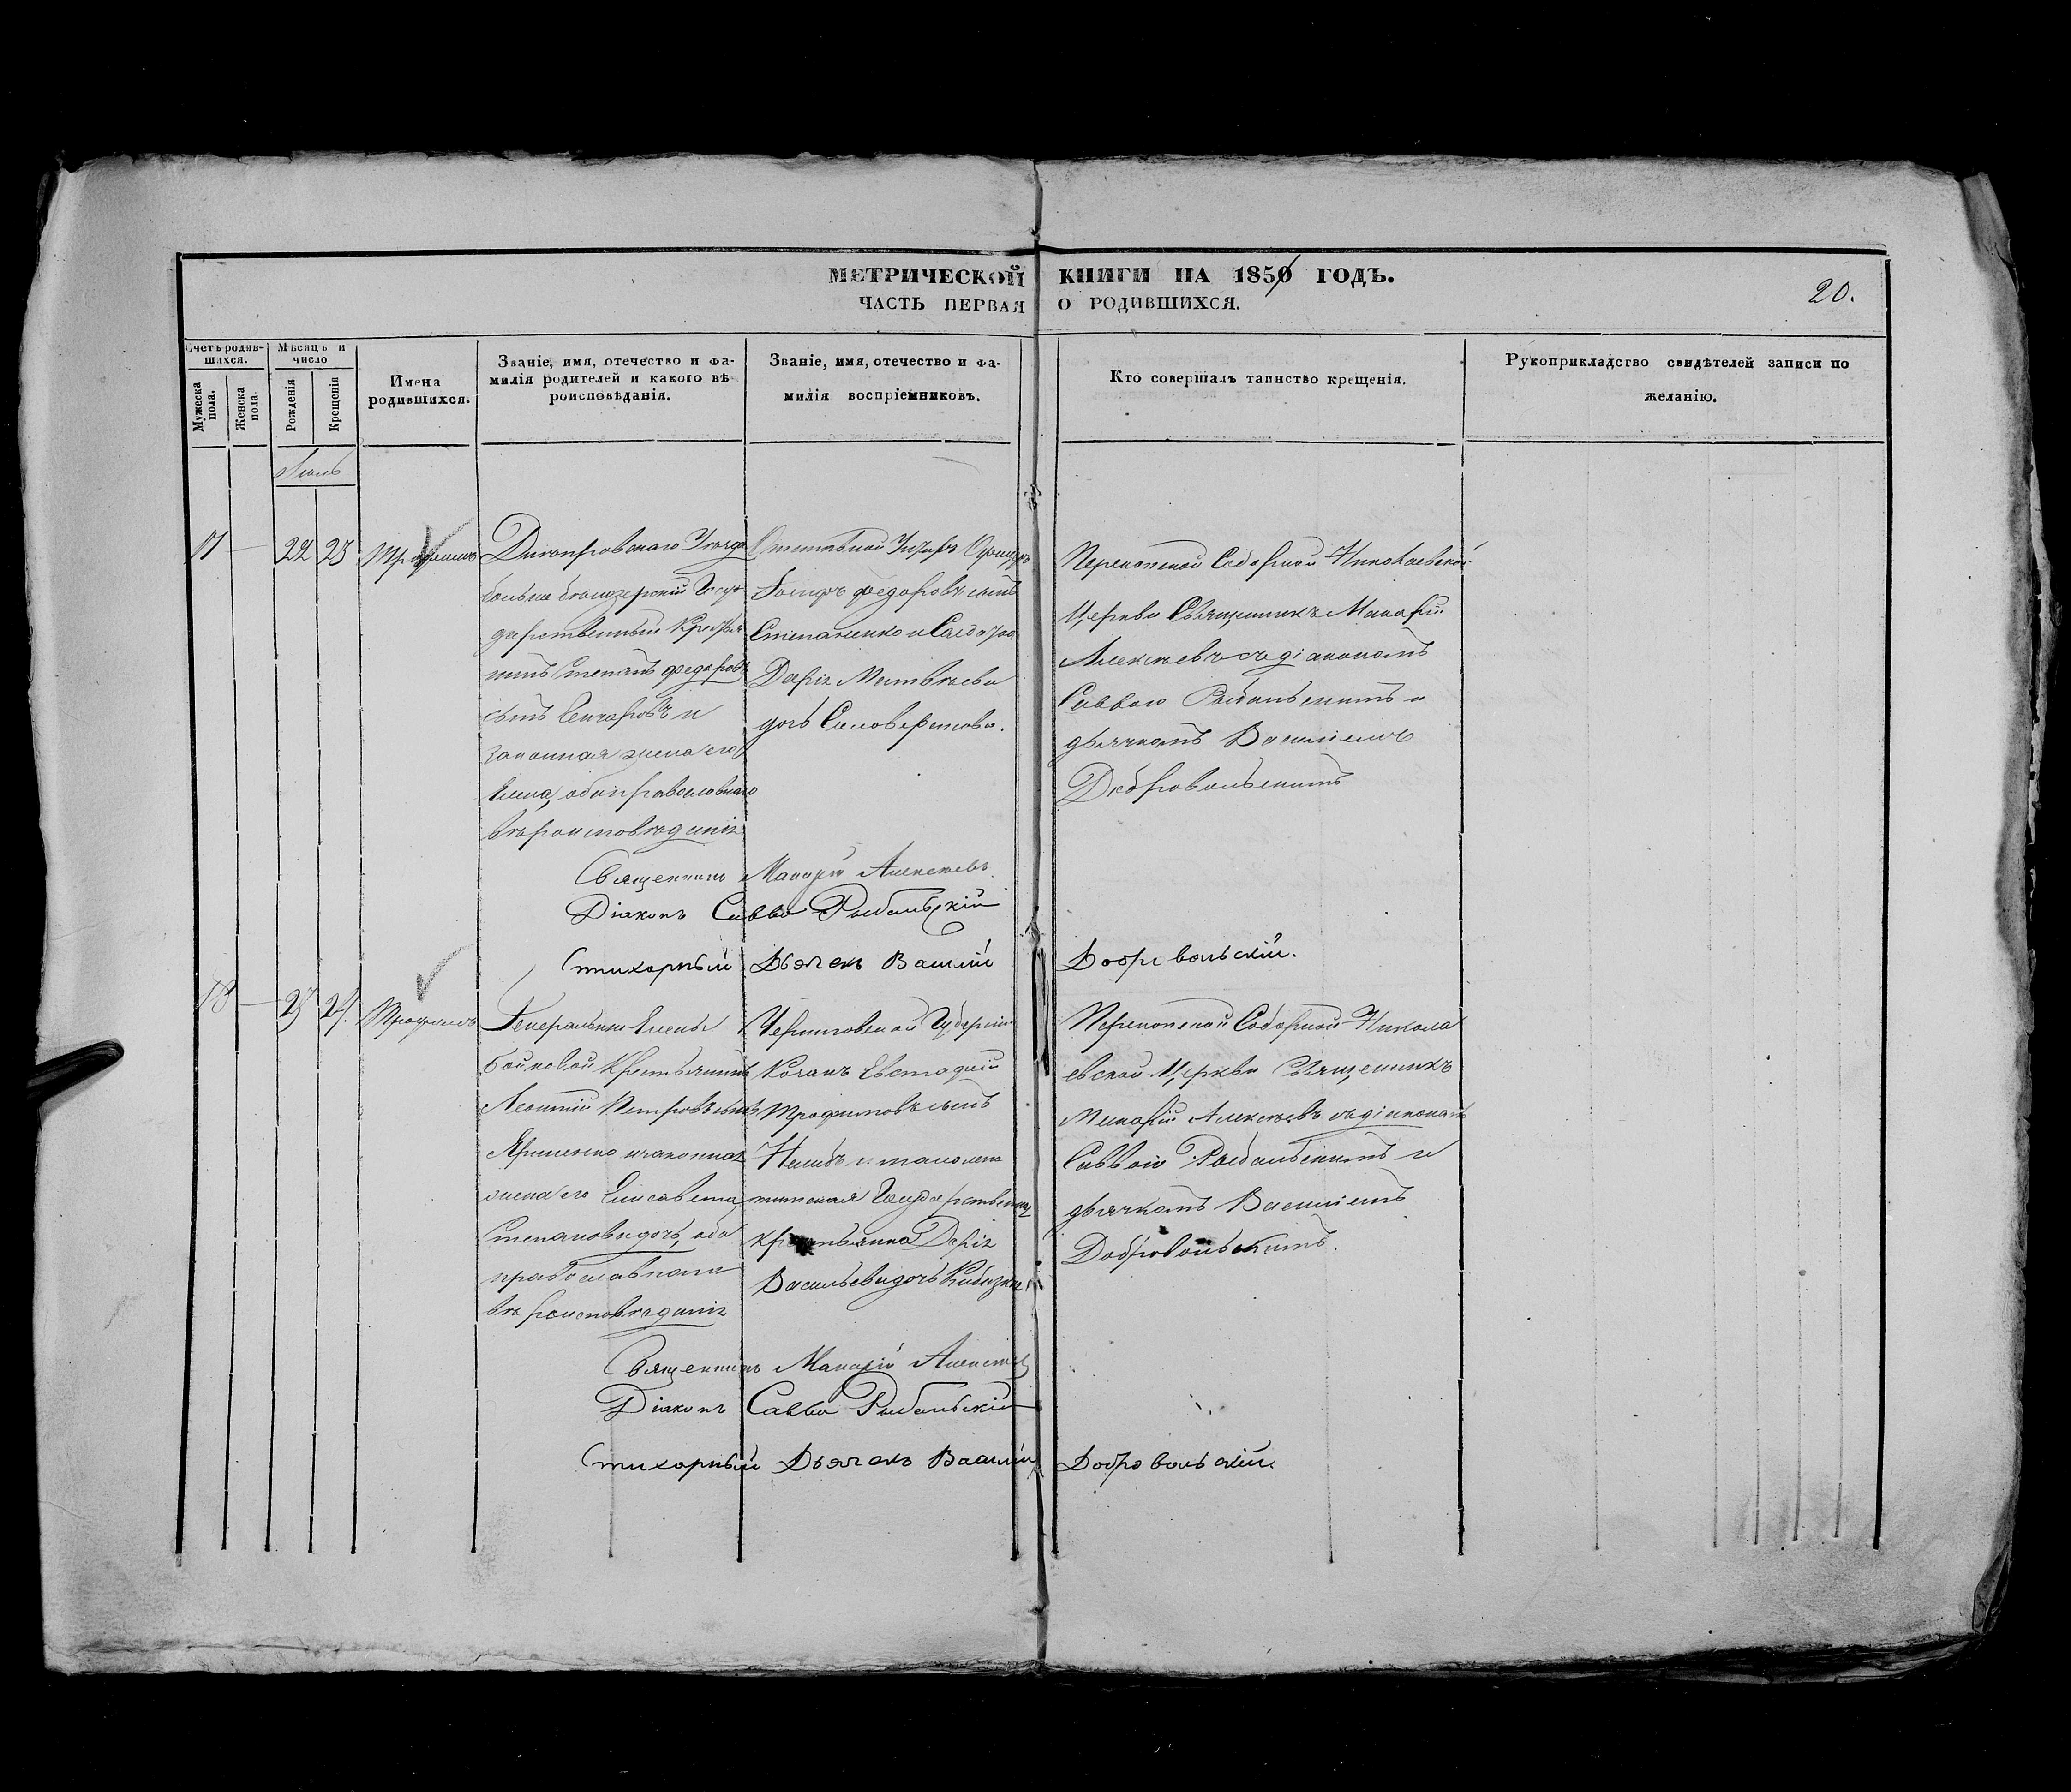 МЕТРИЧЕСКОЙ КНИГИ НА 1850 ГОДЪ.
ЧАСТЬ ПЕРВАЯ О РОДИВШИХСЯ.
20.
Счетъ родившихся.
Мужеска пола.
Женска пола.
Мѣсяцъ и число
Рожденія
Крещенія
Имена родившихся.
Званіе, имя, отечество и фа-
милія родителей и какого вѣ-
роисповѣданія.
Званіе, имя, отечество и фа-
милія воспріемниковъ.
Кто совершалъ таинство крещенія.
Рукоприкладство свидѣтелей записи по
желанію.
17 — 22 23
Днепровскаго Уезда
государственный Крестья
нинъ Степанъ Федоровъ
сынъ и
законная жена его
Елена, оба православнаго
вѣроисповѣданія
Федоровъ сынъ
Степаненко и
Дарія Матвѣева
дочь
Перекопской Соборной Николаевской
Церкви Священникъ Макарій
Алексѣевъ съ діакономъ
Саввою Рыбальскимъ и
дьячкомъ Василіемъ
Добровольскимъ
Священникъ Макарій Алексѣевъ
Діаконъ Савва Рыбальскій
Стихарный Дьячекъ Василій Добровольскій.
18 — 23 24. Трофимъ
Генеральши Елены
Бойковой Крестьянинъ
Леонтій Петровъ сынъ
Яременко и законная
жена его Елисавета
Степанова дочь, оба
православнаго
вѣроисповѣданія
Черниговской Губерніи
Козакъ Евстафій
Трофимовъ сынъ
крестьянка Дарія
Васильева дочь
Перекопской Соборной Никола
евской Церкви Священникъ
Макарій Алексѣевъ съ діакономъ
Саввою Рыбальскимъ и
дьячкомъ Василіемъ
Добровольскимъ.
Священникъ Макарій Алексѣевъ
Діаконъ Савва Рыбальскій
Стихарный Дьячекъ Василій Добровольскій.